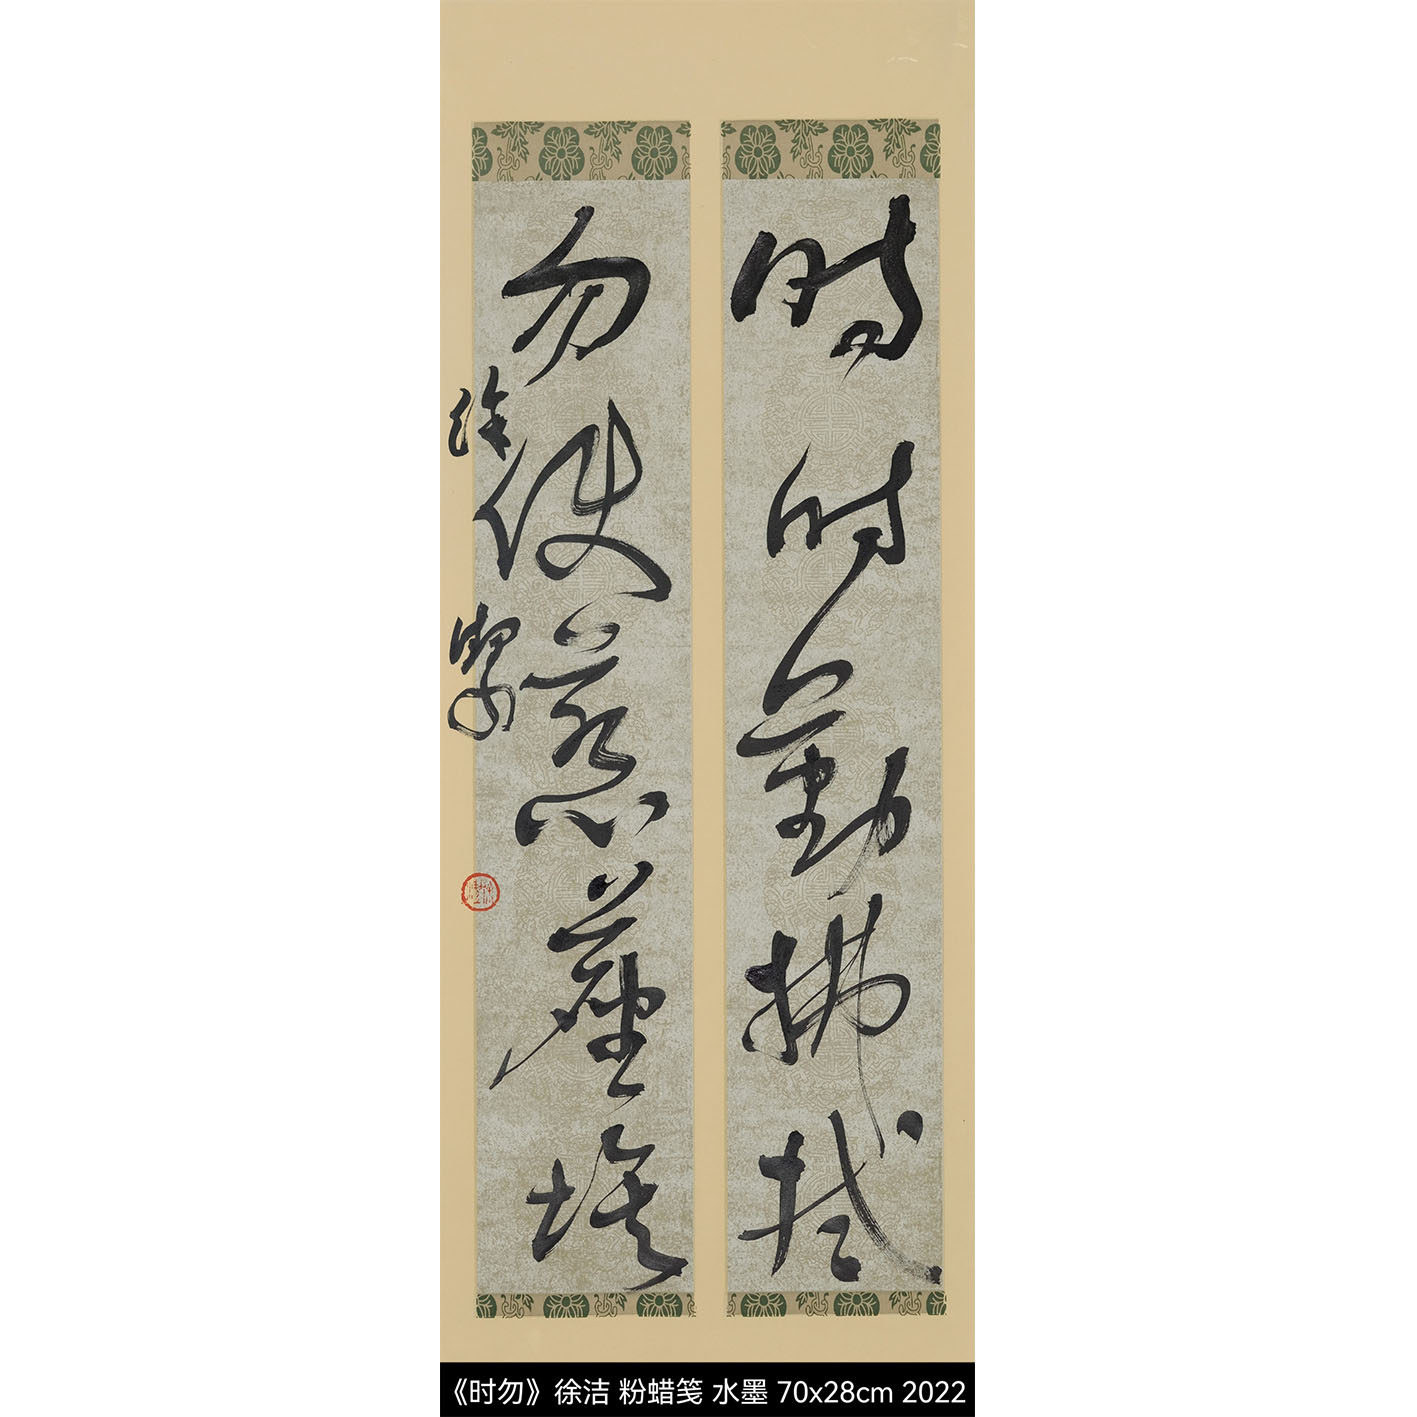 时时勤拂拭
勿使惹塵埃
徐
《时勿》徐洁 粉蜡笺 水墨 70x28cm 2022